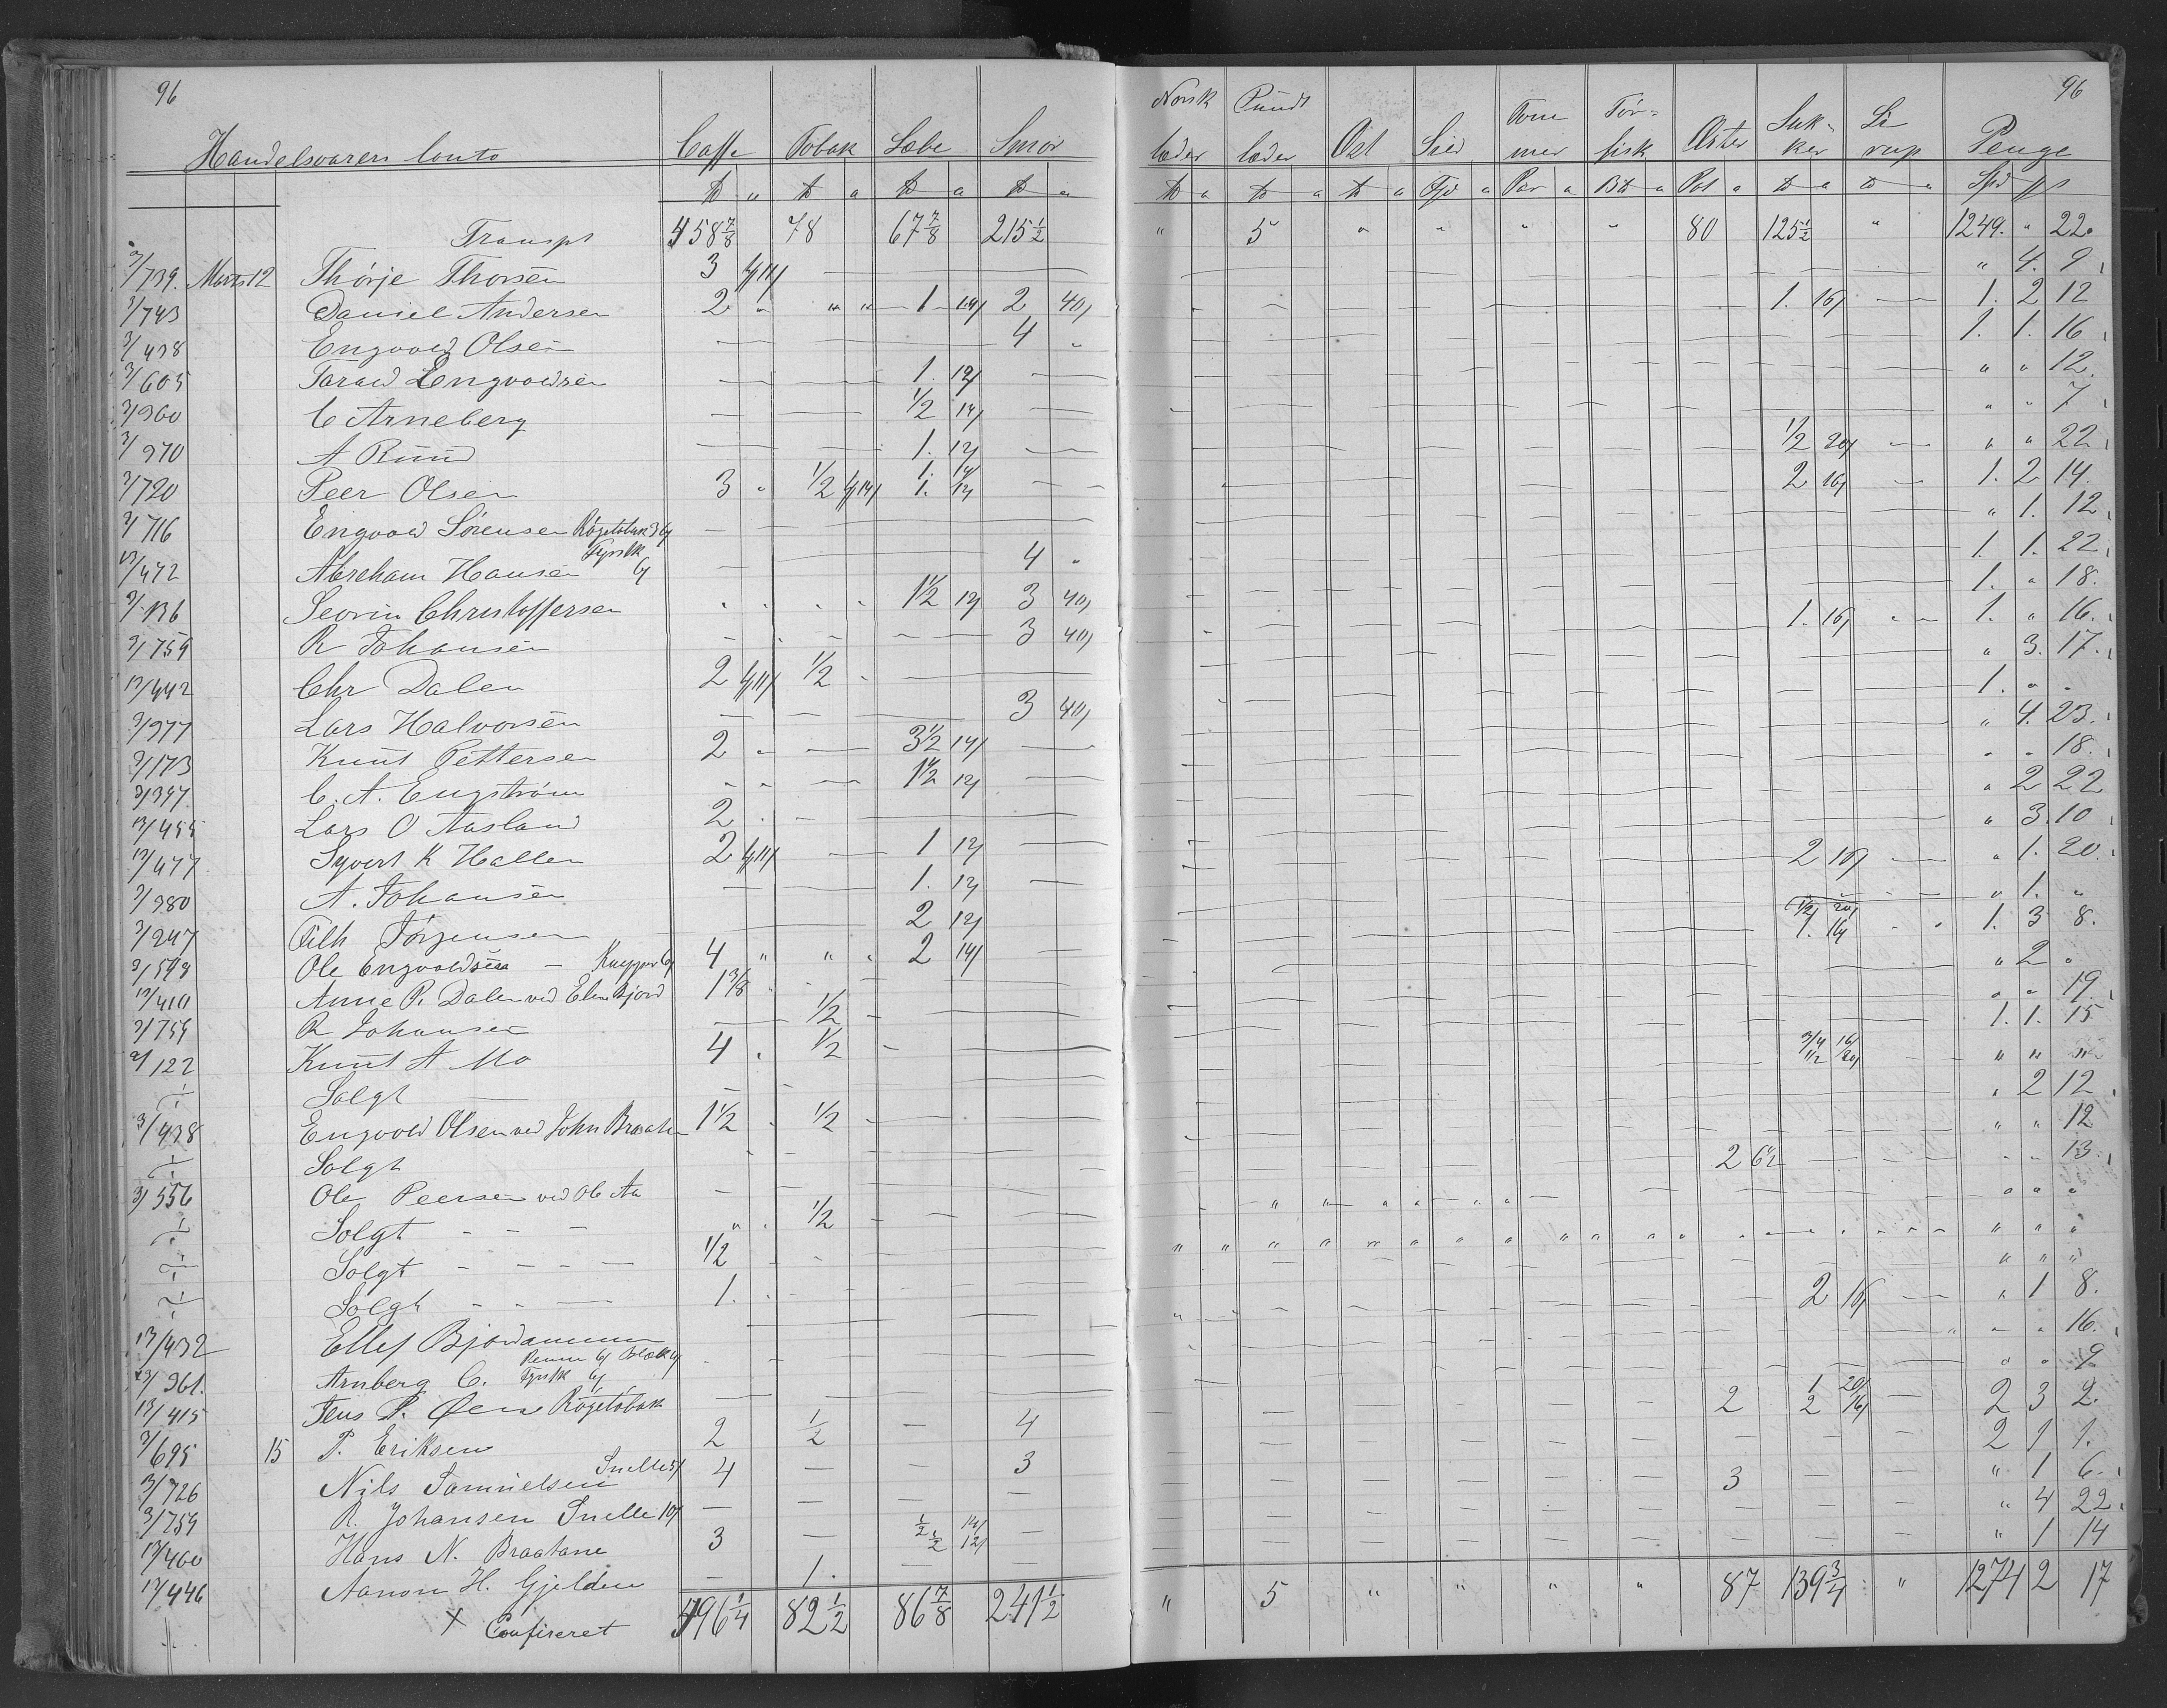 96
Handelsvarers Conto Caffe Tobak Sæbe Smør
℔ " ℔ a ℔ a ℔ a
Transpt 458 7/8 78 67 7/8 215 1/2
3/739. Marts 12 Thörje Thorsen 3
3/743 Daniel Andersen 2 " " " 1 14/ 2 40/
3/438 Engvold Olsen 4 "
3/605 Tarald Engvoldsen 1. 12/
3/960 C Arneberg 1/2 14/
3/970 A Ruud 1. 12/
3/720 Peer Olsen 3 " 1/2 1. 14/ 1. 12/
3/716 Engvold Sørensen Røgetobak
13/472 Abreham Hansen Fyrstk 4 "
3/136 Severin Christoffersen 1 1/2 12/ 3 40/
3/759 R Johansen 3 40/
13/442 Chr Dalen 2 1/2
3/977 Lars Halvorsen 3 40/
3/173 Knut Pettersen 2 " 3 1/2 14/
3/397 C. A. Engstrøm 1 1/2 12/
13/455 Lars O Aasland 2
13/477 Syvert K Hallen 2 1 12/
3/980 A. Johansen 1. 12/
3/247 Jörgensen 2 12/
3/599 Ole Engvoldsen 4 " " " 2 14/
13/410 Anne P. Dalen ved Elen Bjord 1 3/8
3/759 R Johansen 1/2
3/122 Knut A Mo 4 . 1/2
Solgt
3/438 Engvold Olsen ved John Braaten 1 1/2 1/2
Solgt
3/556 Ole Peersen ved Ole Aa
Solgt 1/2
Solgt 1/2
Solgt 1.
13/432 Ellef Bjordammen
13/961. Arnberg C. Fyrstk
13/415 Jens P. Øen Rögetobak
3/695 15 P. Eriksen 2 1/2 4
13/726 Nils Samuelsen Snelle 4 3
3/759 R. Johansen Snelle 10/
13/460 Hans N. Braatane 3 1/2 14/ 1/2 12/
13/446 Aanon H. Gjelden 1.
496 1/4 82 1/2 86 7/8 241 1/2
X Confireret
96
Norsk læder Pundt læder Ost Sild Tømmer Tørfisk Øster Sukker Sirup Penge
℔ a ℔ a ℔ a Fjd a Par a B℔ a Pot a ℔ a ℔ a Spd
" 5 " " " " 80 125 1/2 " 1249. " 22.
" 4. 9
1. 16/ 1. 2 12
1. 1. 16
" " 12.
" " 7
1/2 20/ " " 22
2 16/ 1. 2 14.
" 1. 12
1. 1. 22
1. " 18.
1. 16/ 1. " 16.
" 3. 17.
1. " "
" 4. 23.
" " 18.
" 2 22
" 3. 10
2 16/ " 1. 20.
" 1. "
1/2 20/ 1. 16/ 1. 3 8.
" 2 "
" " 19.
1. 1. 15
3/4 16/ 1/2 20/ " " "
" 2 12
" " 12
2 6 1/2 " " 13.
" " "
" " "
" " "
2 16/ " 1 8.
" " 16.
" " 9
2 1 20/ 2 16/ 2 3 2.
2 1 1.
3 " 1 6.
" 4 22.
" 1 14
" 5 " " " " 87 139 3/4 " 1274 2 17